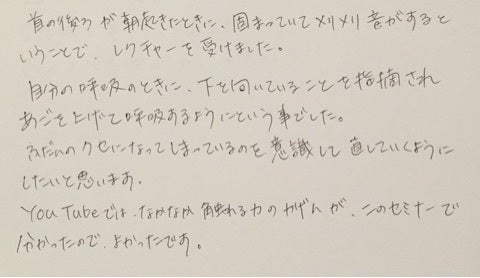 首の後ろが朝起きたときに、固まっていてメリメリ音がすると
いうことで、レクチャーを受けました。
自分の呼吸のときに、下を向いていることを指摘され
あごを上げて呼吸するようにという事でした。
ふだんのクセになってしまっているのを意識して直していくように
したいと思います。
YouTubeでは、なかなか触れる力のかげんが、このセミナーで
分かったので、よかったです。